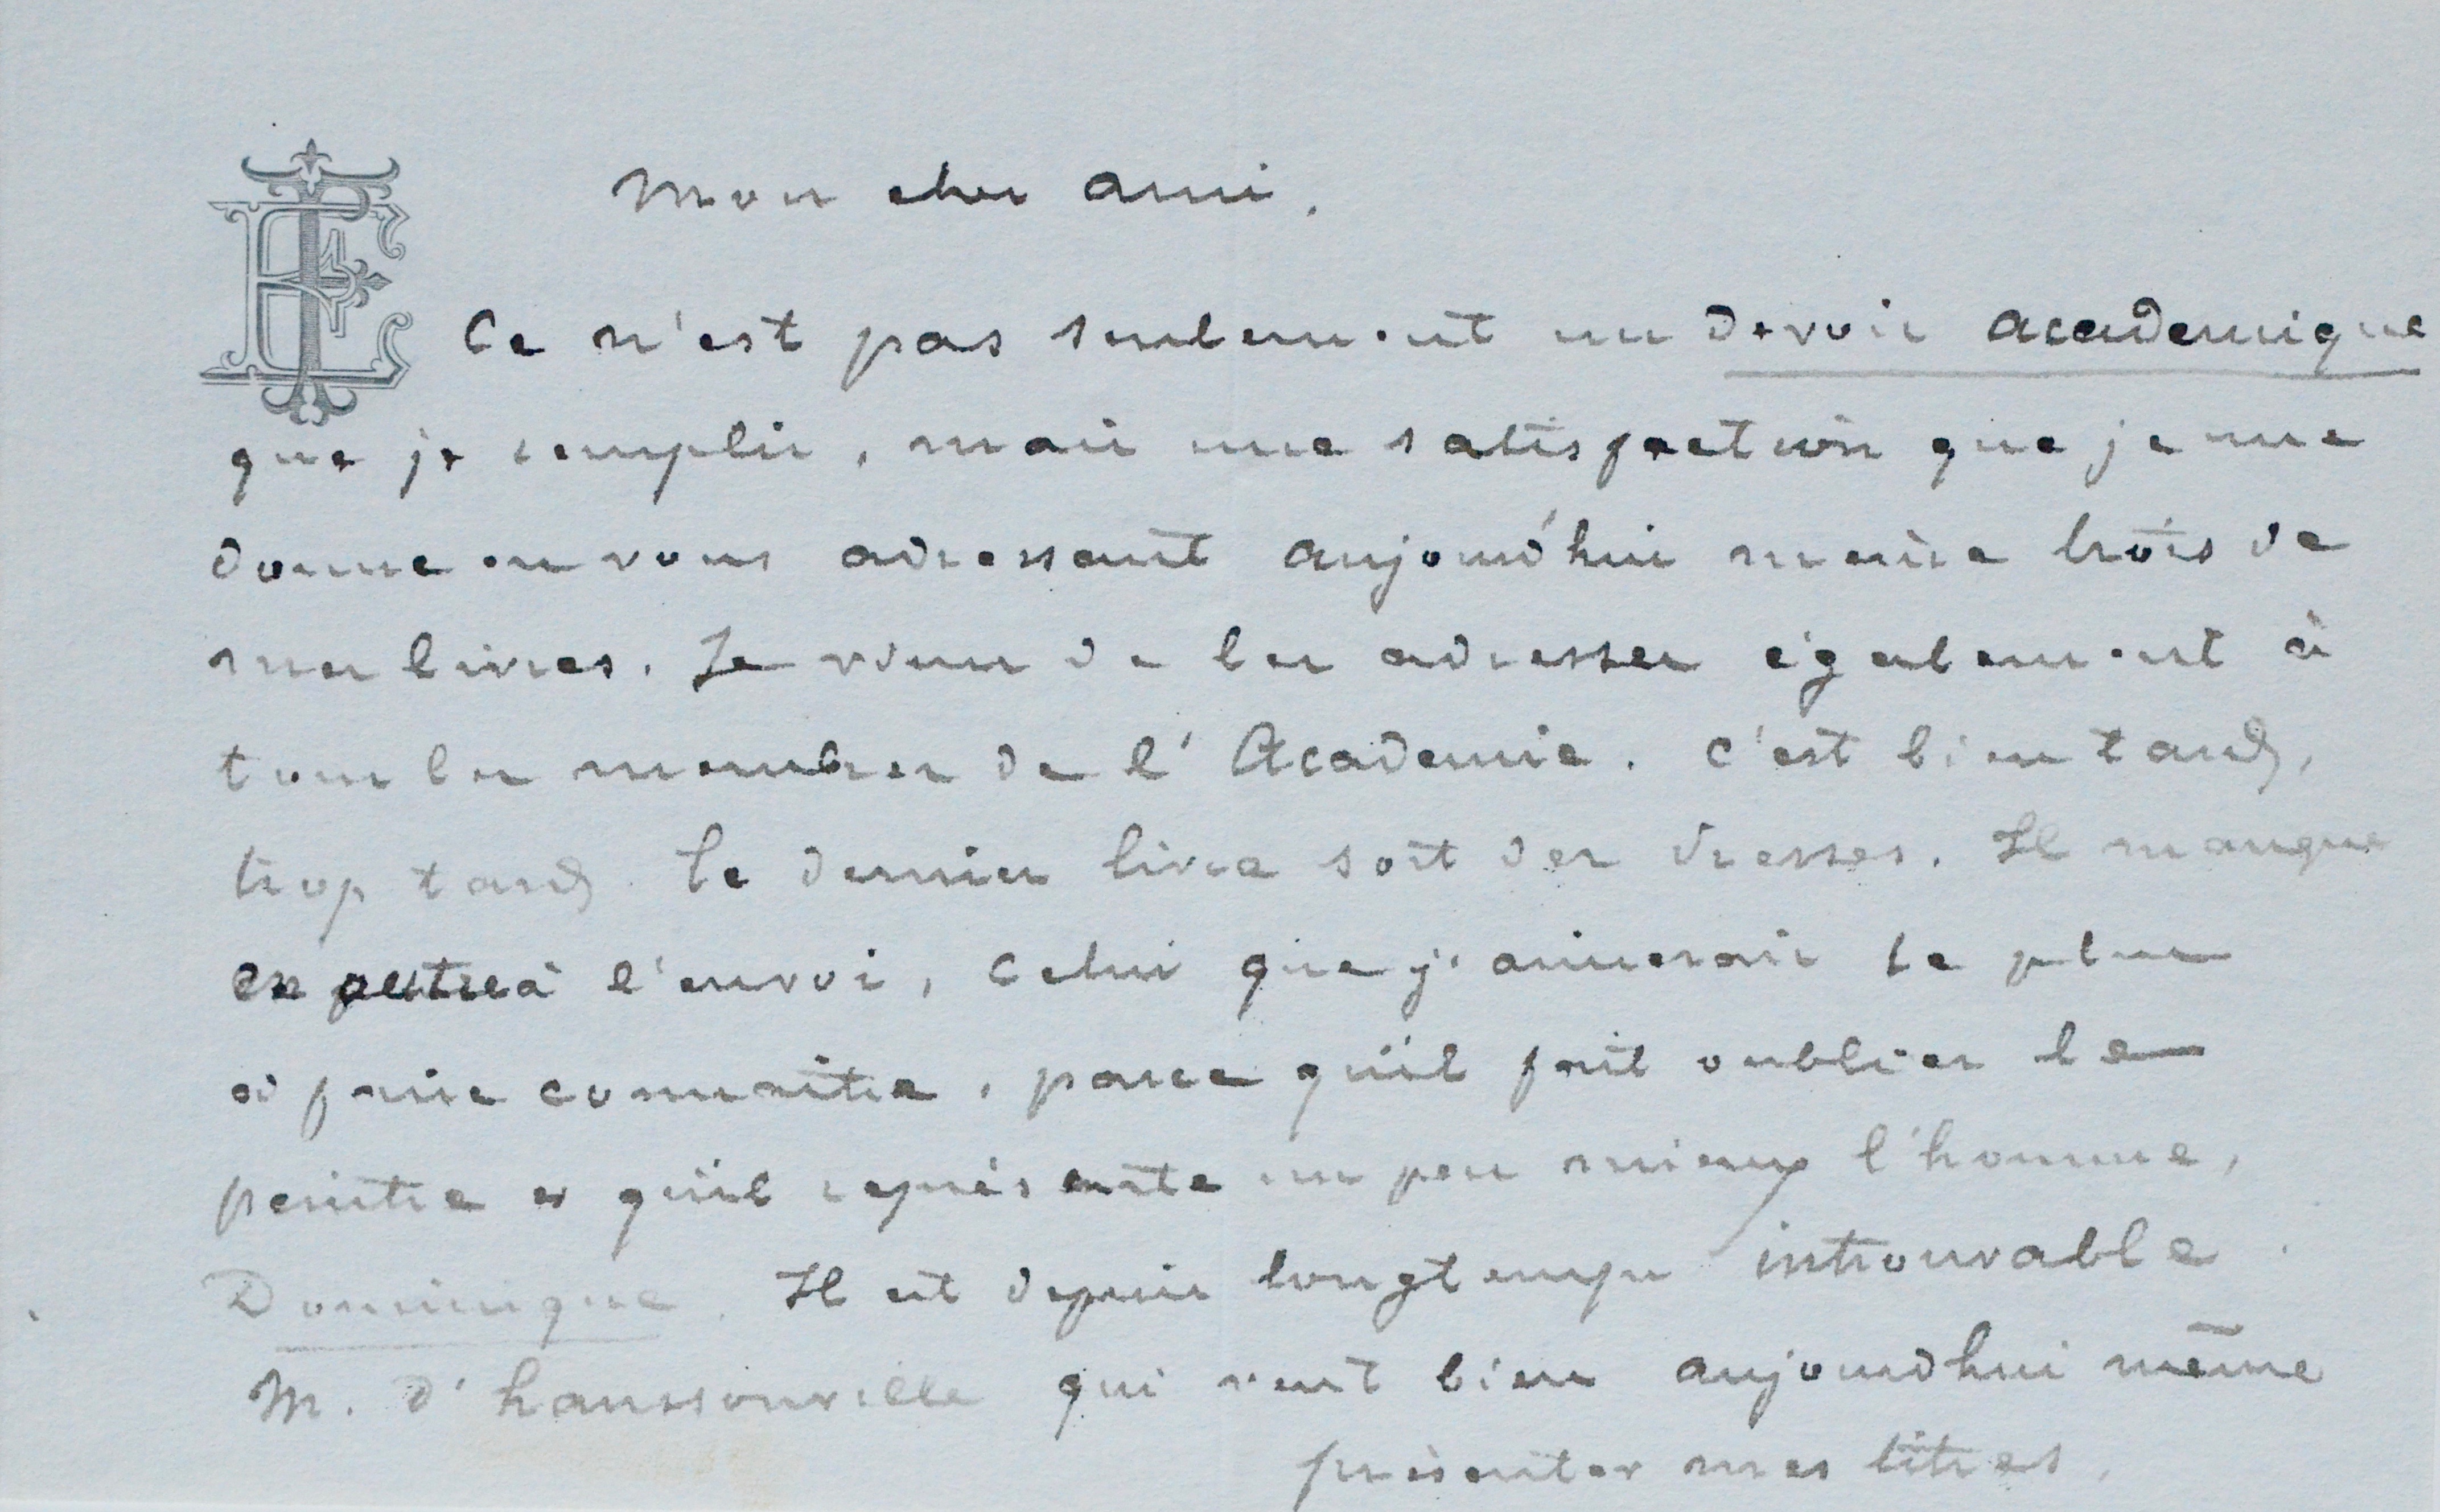 Mon cher ami.
Ce n'est pas seulement un devoir academique
que je remplis, mais une satisfaction que je me
donne en vous adressant aujourd'hui même trois de
mes livres. Je viens de les adresser également à
tous les membres de l'Academie. C'est bien tard,
trop tard. Le dernier livre sort des presses. Il manque
à l'envoi, celui que j'aimerais le plus
à faire connaître, parce qu'il fait oublier le
peintre et qu'il représente un peu mieux l'homme,
Dominique. Il est depuis longtemps introuvable.
M. d'haussonville qui veut bien aujourdhui même
présenter mes titres,